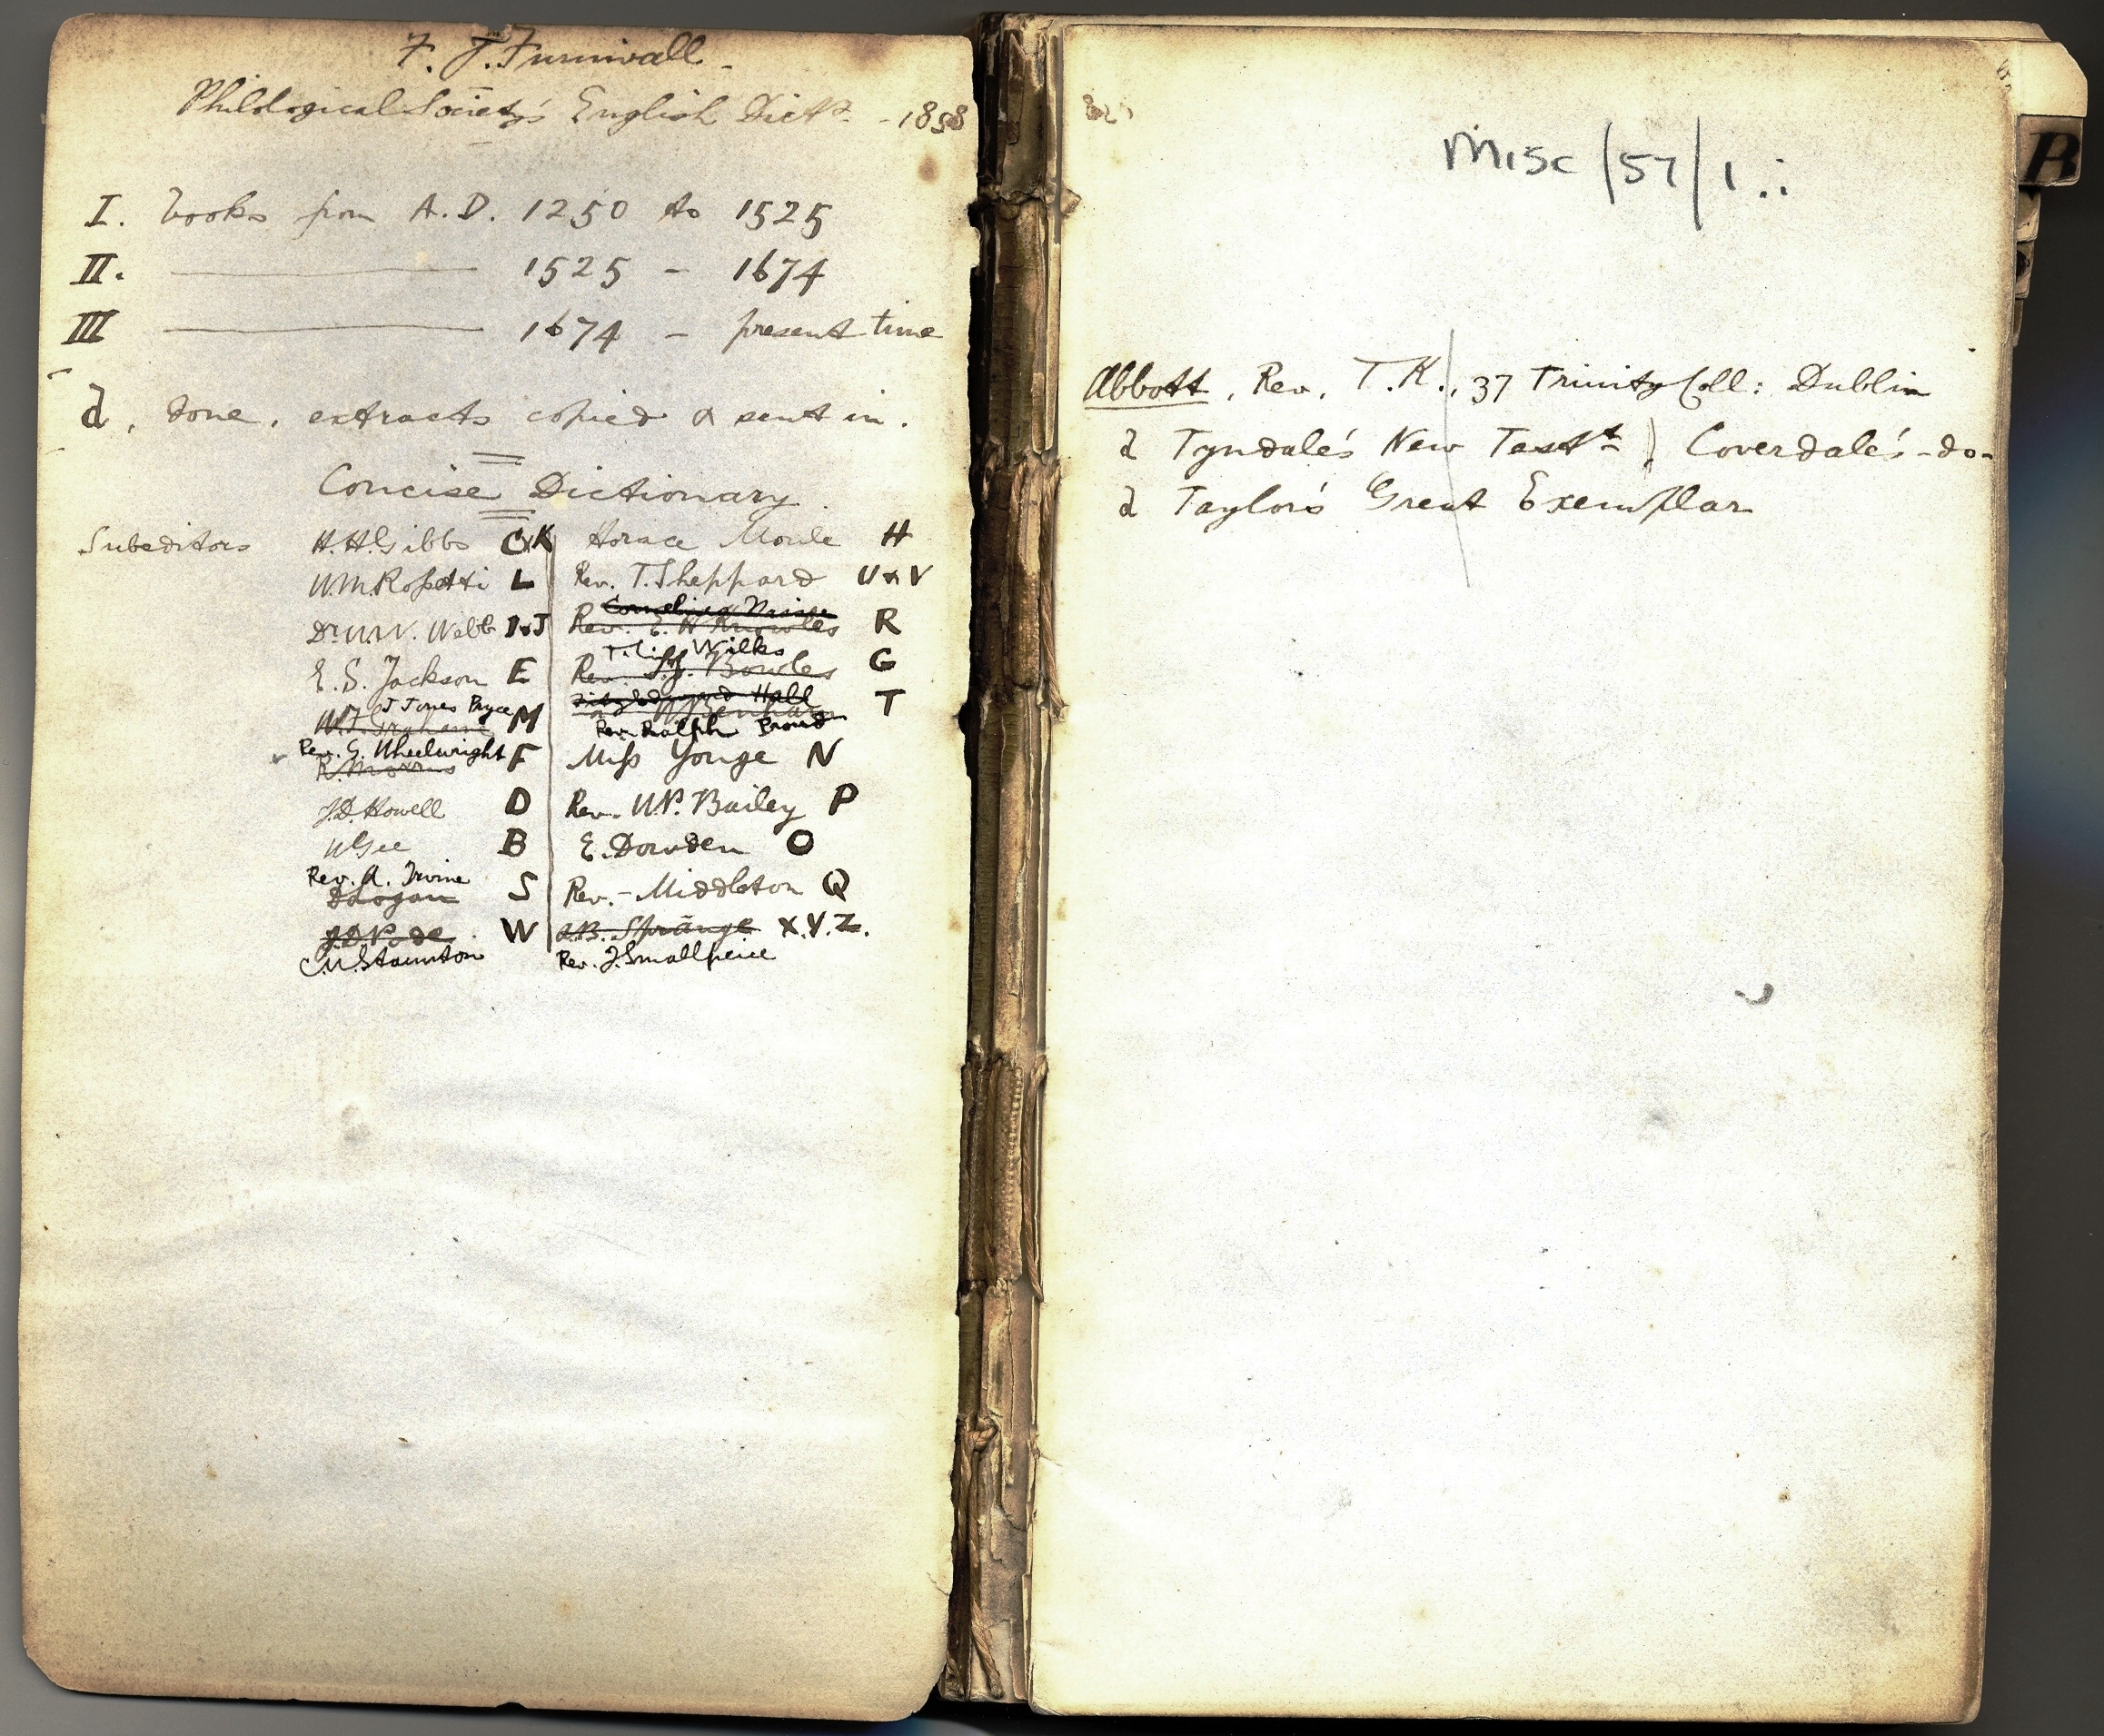 F. J. Furnivall.
Philological Society's English Dicty. - 1858
I. books from A.D. 1250 to 1525
II. ——— 1525 - 1674
III ——— 1674 - present time
d, done, extracts copied & sent in.
Concise Dictionary
Subeditors H.H. Gibbs C,K
W.M. Rossetti L
Dr. W.W. Webb I & J
E. S. Jackson E
J Jones Pryce
M
Rev. G. Wheelwright F
R. Morris
J.D. Howell D
W Gee B
Rev. A. Irvine
D Logan S
W
C.W. Staunton
Horace Moule H
Rev. T. Sheppard U & V
Rev. E. H Knowles R
Wilks
Rev. Bowles G
Fitzedward Hall T
Rev. Ralph Proud
Miss Yonge N
Rev. W.P. Bailey P
E. Dowden O
Rev. - Middleton Q
J.B. Strange X.Y.Z.
Rev. J. Smallpeice
Misc/57/1.:
B
Abbott, Rev. T.K., 37 Trinity Coll: Dublin
d Tyndale's New Testt } Coverdale's -do-
d Taylor's Great Exemplar